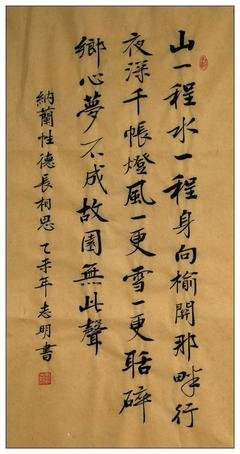 山一程水一程身向榆關那畔行
夜深千帳燈風一更雪一更聒碎
鄉心夢不成故園無此聲
納蘭性德長相思 乙未年志明書